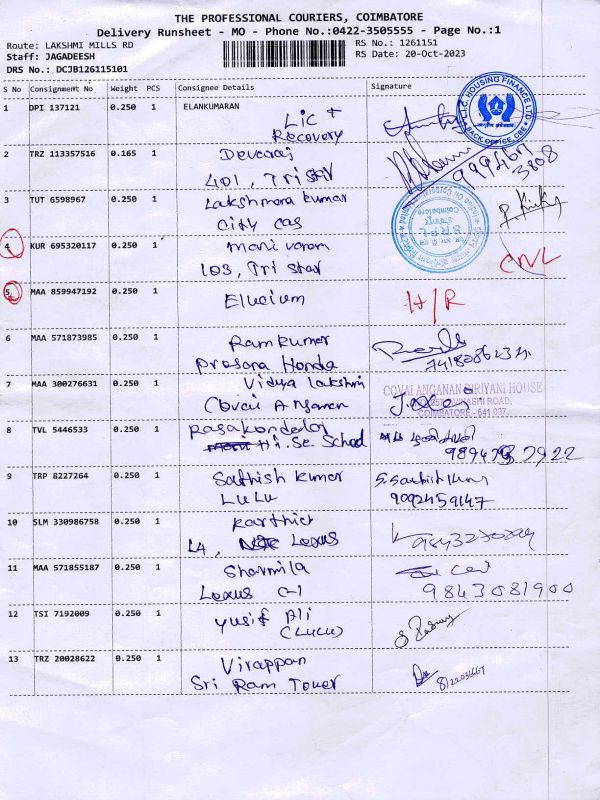 THE PROFESSIONAL COURIERS, COIMBATORE
Delivery Runsheet - MO - Phone No.:0422-3505555 - Page No.:1
Route: LAKSHMI MILLS RD
RS No.: 1261151
Staff: JAGADEESH
RS Date: 20-Oct-2023
DRS No.: DCJB126115101
S No Consignment No Weight PCS Consignee Details Signature
1 DPI 137121 0.250 1 ELANKUMARAN
LIC
Recovery
L.I.C. HOUSING FINANCE LTD
BACK OFFICE, CBE
2 TRZ 113357516 0.165 1 Devaraj
401, Tristar
999467
3808
3 TUT 6598967 0.250 1 Lakshmana kumar
City Gas
Coimbatore
4 KUR 695320117 0.250 1 manivaram
103, Tri star
CNL
5 MAA 859947192 0.250 1 Elucium H/R
6 MAA 571873985 0.250 1 Ramkumar
Prasana Honda
7 MAA 300276631 0.250 1 Vidya Lakshmi
Covai Anganan
COVAI ANGANAN BIRIYANI HOUSE
AVINASHI ROAD,
COIMBATORE - 641 037.
8 TVL 5446533 0.250 1 Rasakondalar
Hr. Se. School
9 TRP 8227264 0.250 1 Sathish kumar
LuLu
S. Sathish kumar
9092459147
10 SLM 330986758 0.250 1 Karthick
L4, Lexus
11 MAA 571855187 0.250 1 Sharmila
Lexus C-1
9843081900
12 TSI 7192009 0.250 1 Yusif Ali
(LuLu)
13 TRZ 20028622 0.250 1 Virappan
Sri Ram Tower